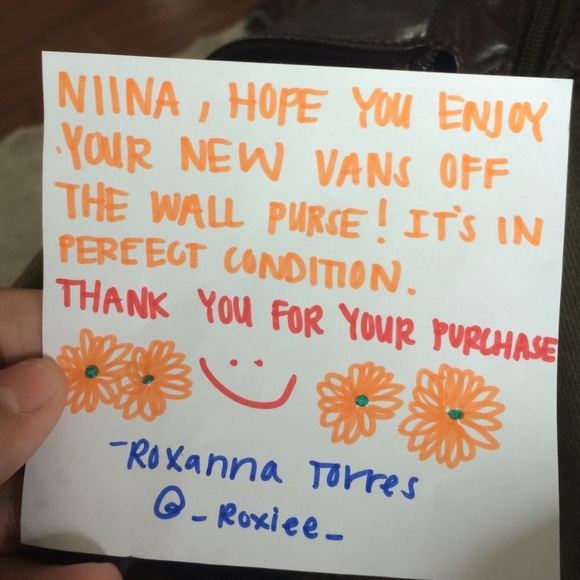 NIINA, HOPE YOU ENJOY
YOUR NEW VANS OFF
THE WALL PURSE! IT'S IN
PERFECT CONDITION.
THANK YOU FOR YOUR PURCHASE
-Roxanna Torres
@_Roxiee_